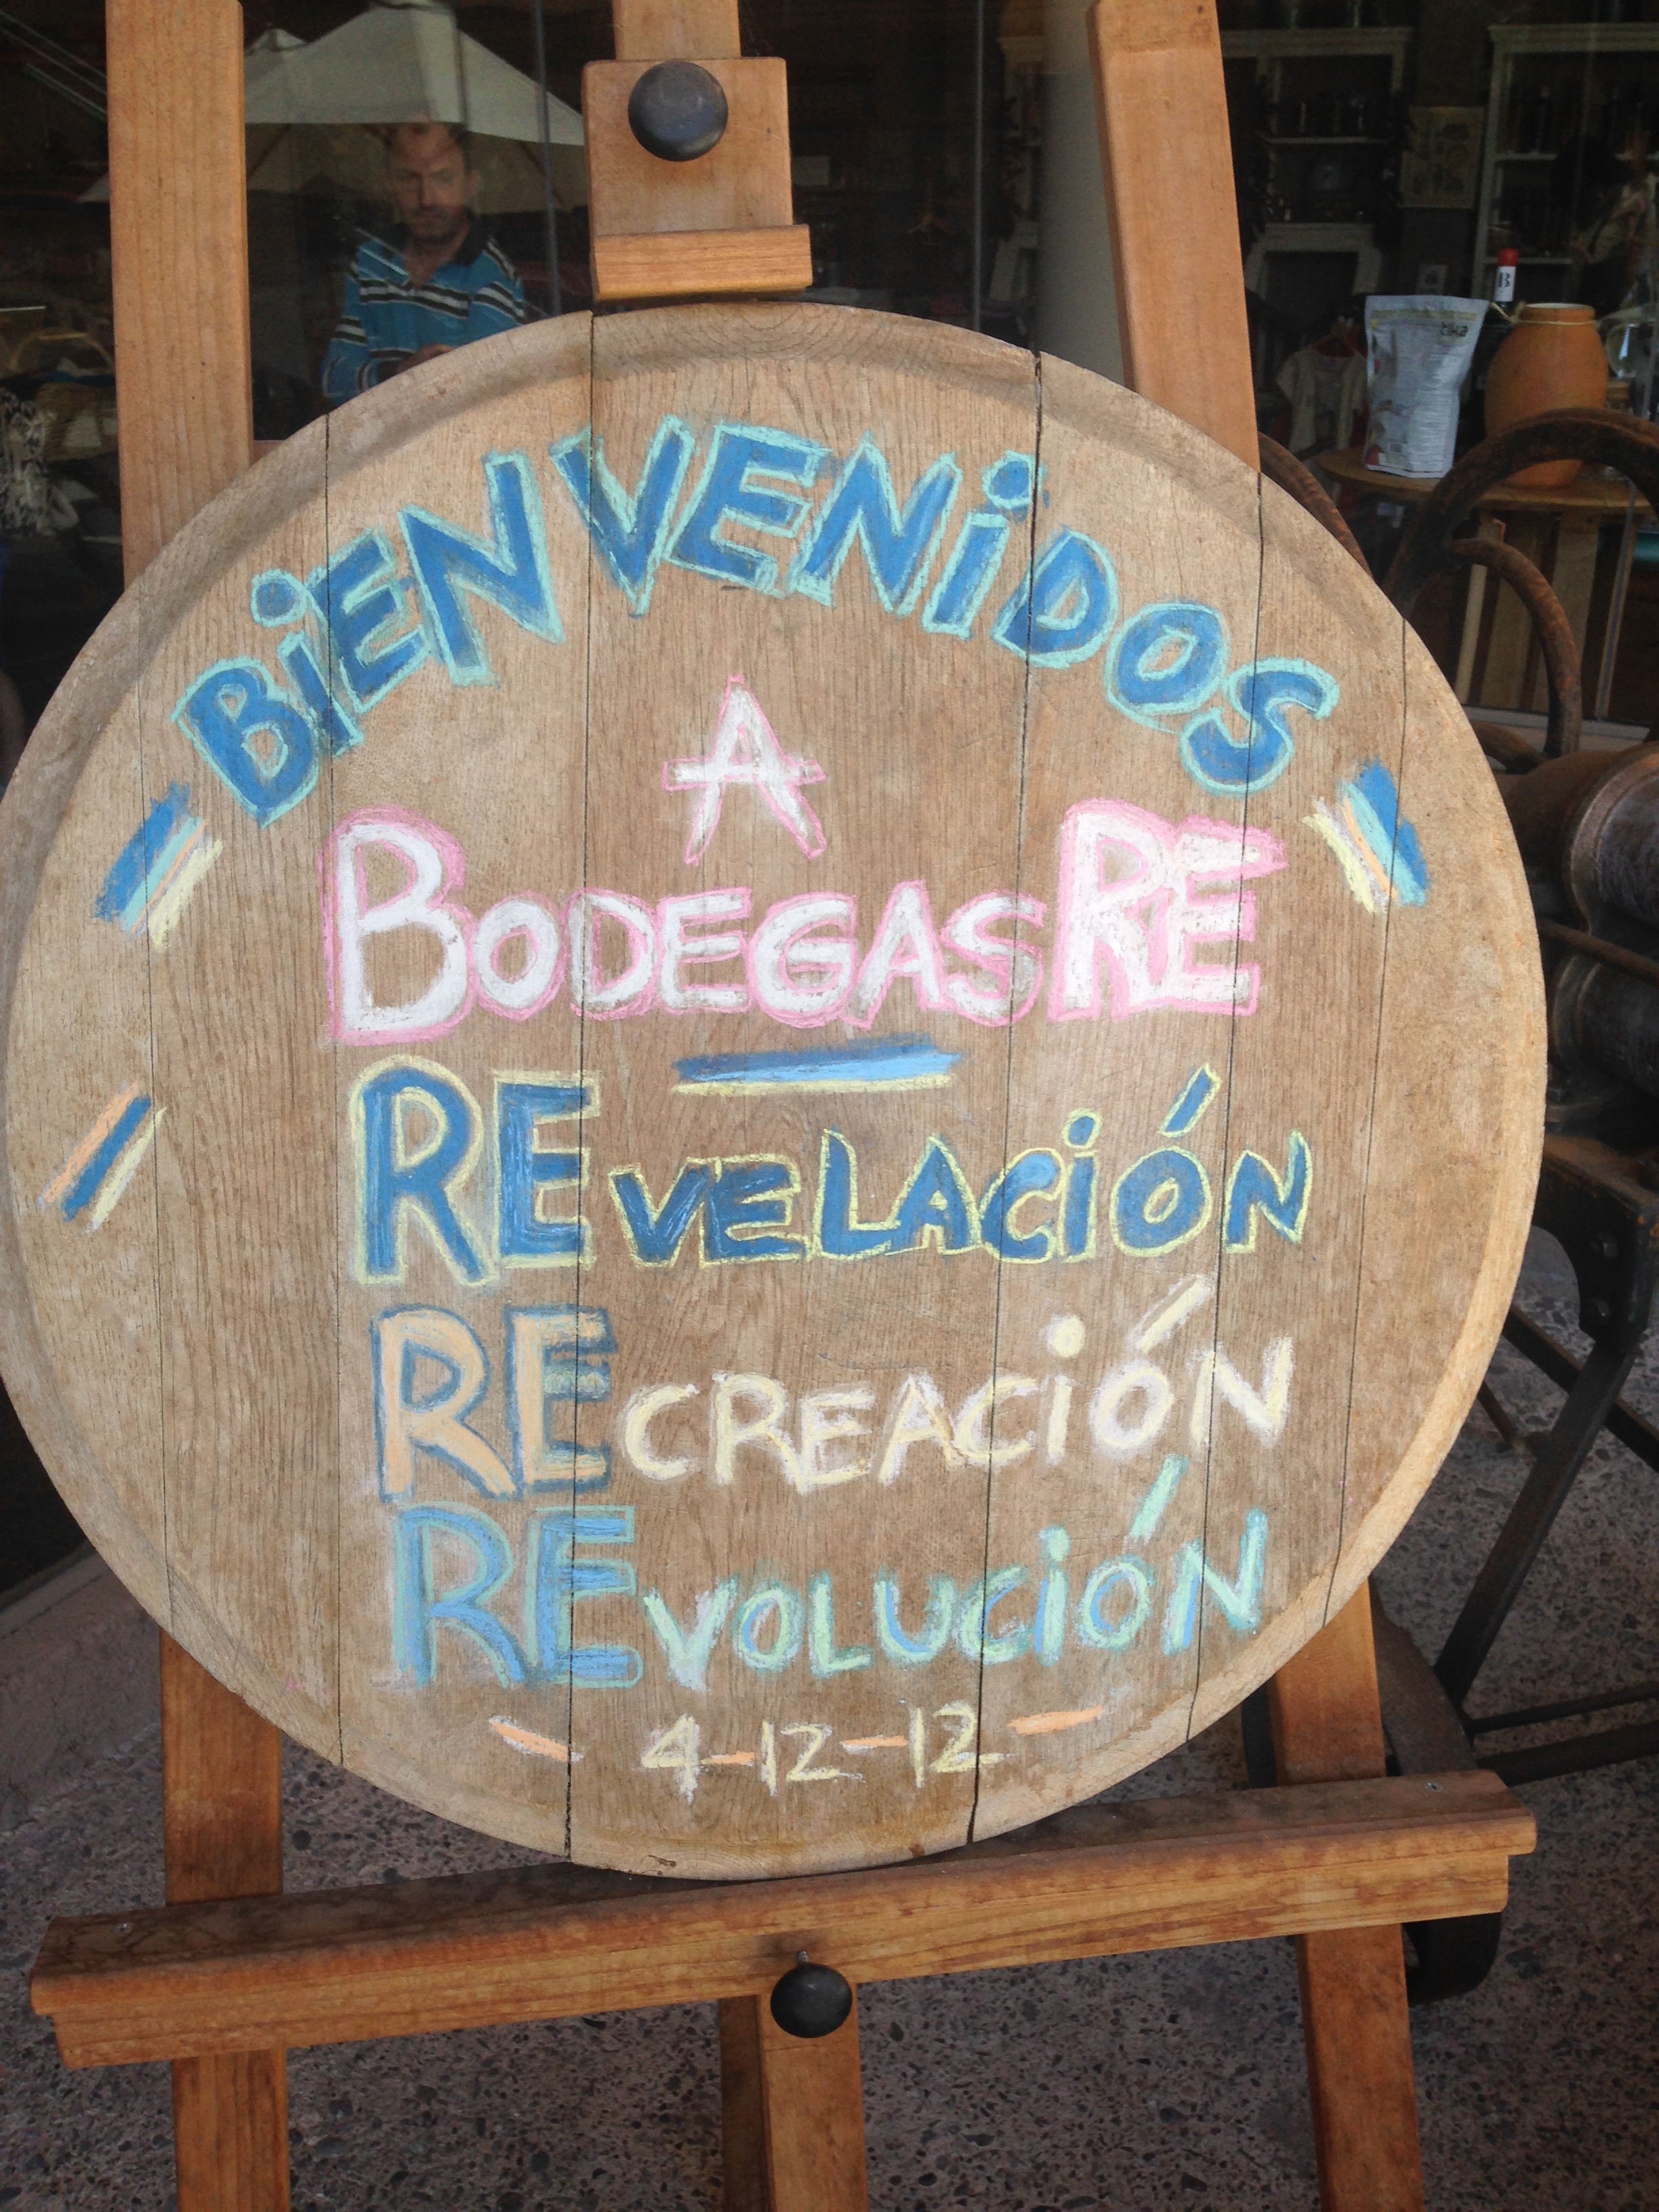 BiENVENiDOS
A
BODEGAS RE
REVELACiÓN
RECREACiÓN
REVOLUCiÓN
- 4-12-12 -
tika
B